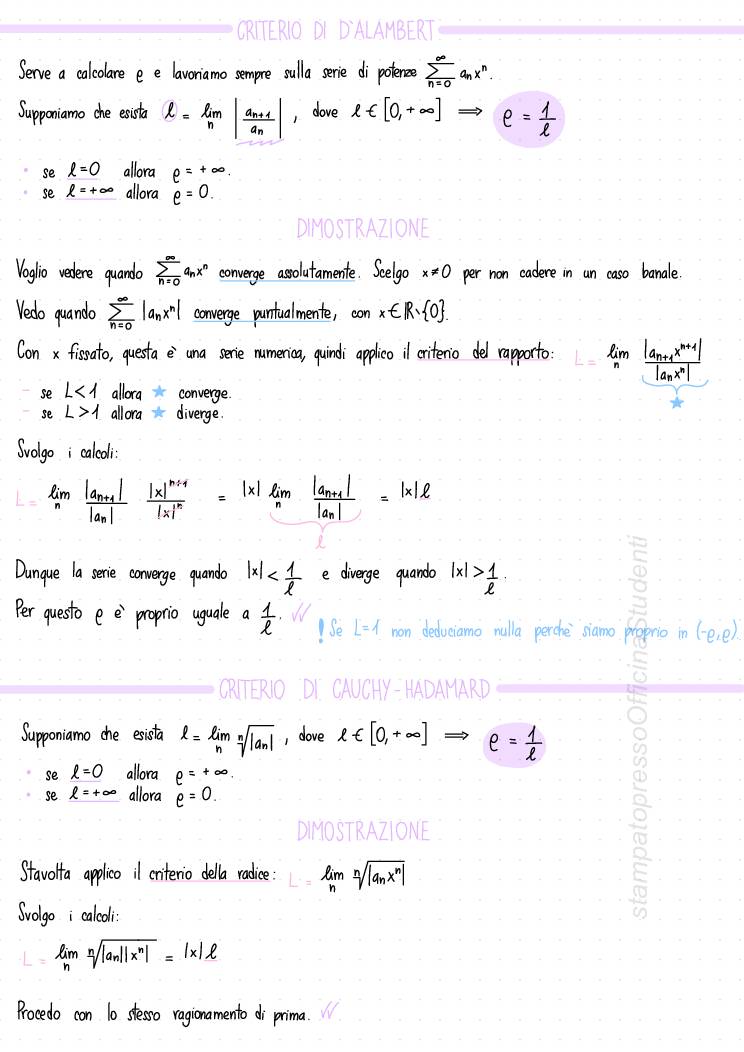 CRITERIO DI D'ALAMBERT
Serve a calcolare ρ e lavoriamo sempre sulla serie di potenze ∑_{n=0}^{∞} aₙxⁿ.
Supponiamo che esista ℓ = lim_n |aₙ₊₁/aₙ| , dove ℓ ∈ [0,+∞] ⟹ ρ = 1/ℓ
• se ℓ=0 allora ρ = +∞.
• se ℓ=+∞ allora ρ = 0.
DIMOSTRAZIONE
Voglio vedere quando ∑_{n=0}^{∞} aₙxⁿ converge assolutamente. Scelgo x≠0 per non cadere in un caso banale.
Vedo quando ∑_{n=0}^{∞} |aₙxⁿ| converge puntualmente, con x∈ℝ∖{0}.
Con x fissato, questa è una serie numerica, quindi applico il criterio del rapporto: L = lim_n |aₙ₊₁xⁿ⁺¹|/|aₙxⁿ|
★
– se L<1 allora ★ converge.
– se L>1 allora ★ diverge.
Svolgo i calcoli:
L = lim_n |aₙ₊₁|/|aₙ| |x|ⁿ⁺¹/|x|ⁿ = |x| lim_n |aₙ₊₁|/|aₙ| = |x|ℓ
ℓ
Dunque la serie converge quando |x| < 1/ℓ e diverge quando |x| > 1/ℓ.
Per questo ρ è proprio uguale a 1/ℓ. ✓✓
! Se L=1 non deduciamo nulla perchè siamo proprio in (-ρ,ρ).
CRITERIO DI CAUCHY-HADAMARD
Supponiamo che esista ℓ = lim_n ⁿ√|aₙ| , dove ℓ ∈ [0,+∞] ⟹ ρ = 1/ℓ
• se ℓ=0 allora ρ = +∞.
• se ℓ=+∞ allora ρ = 0.
DIMOSTRAZIONE
Stavolta applico il criterio della radice: L = lim_n ⁿ√|aₙxⁿ|
Svolgo i calcoli:
L = lim_n ⁿ√|aₙ||xⁿ| = |x|ℓ
Procedo con lo stesso ragionamento di prima. ✓✓
stampatopressoOfficinaStudenti